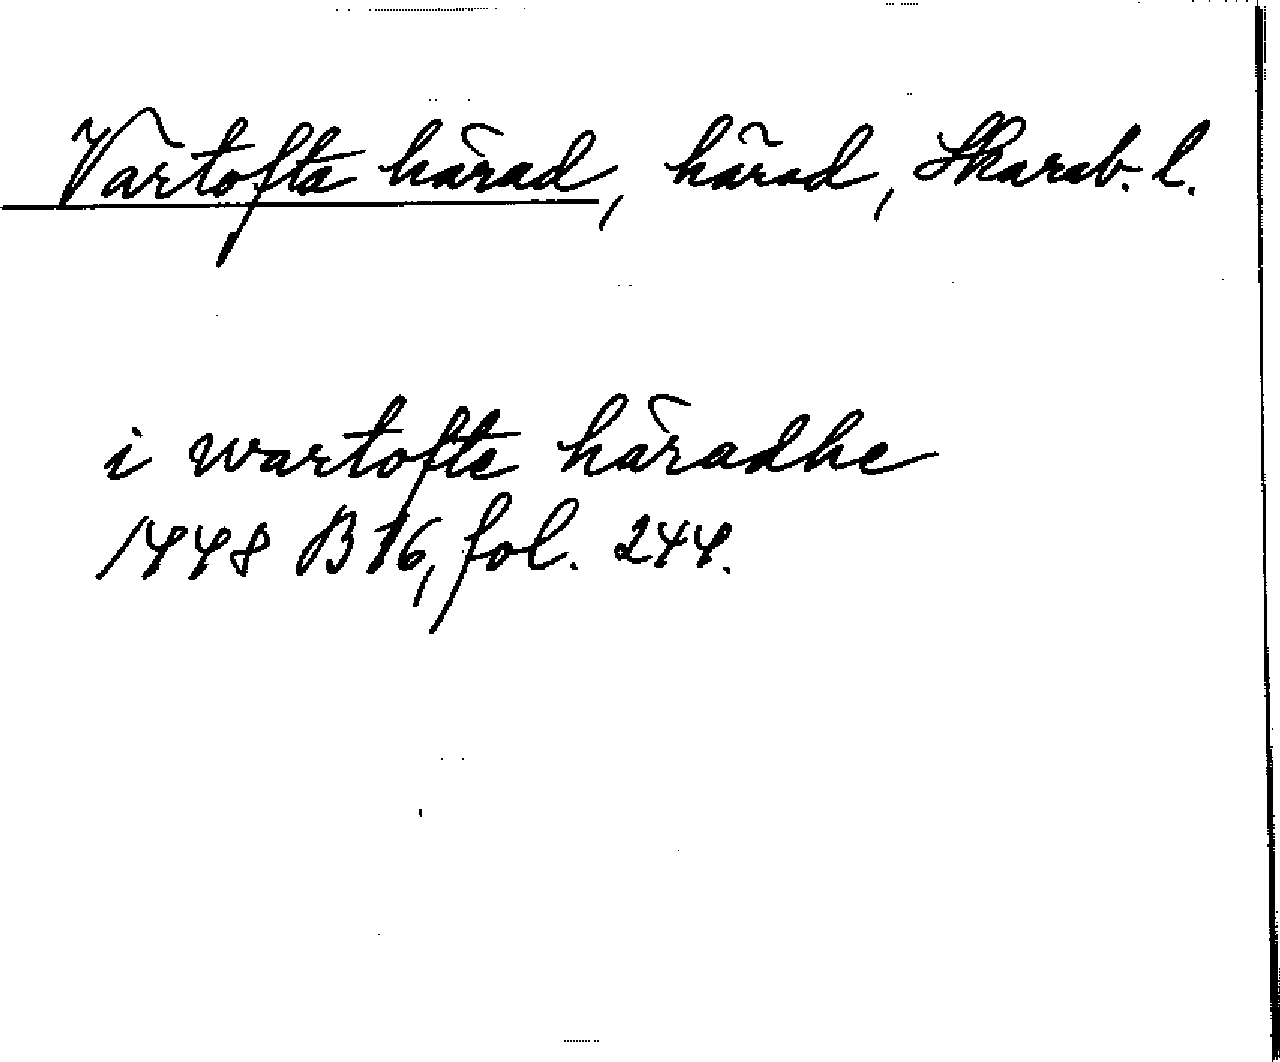 Vartofta härad, härad, Skarab. l.
i wartofte häradhe
1448 B 16, fol. 244.